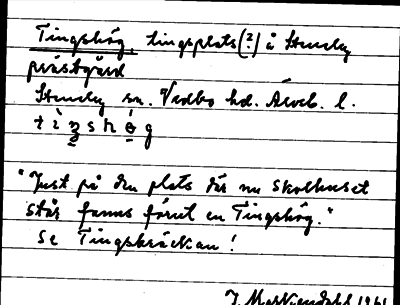 Tingshög, tingsplats (?) å Steneby
prästgård
Steneby sn. Vedbo hd. Älvsb. l.
"Just på den plats där nu skolhuset
står fanns förut en Tingshög."
Se Tingsbräckan!